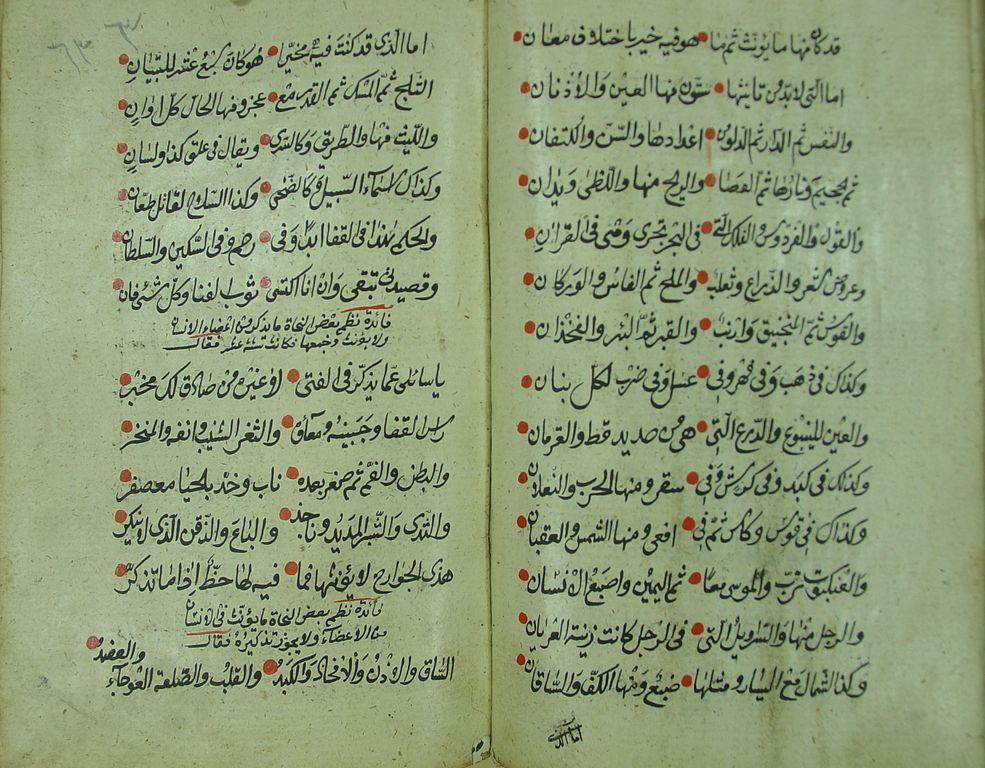 قد كان منها ما يؤنث ثم ما هو فيه خير باختلاف معان
اما التي لا بد من تانيثها ستون منها العين والاذنان
والنفس ثم الدار ثم الدلو من اعدادها والسن والكتفان
ثم جحيم ونارها ثم العصا والريح منها واللظى ويدان
والغول والفردوس والفلك التي في البحر تجرى وهي في القران
وعروض شعر والذراع وثعلب والملح ثم الفاس والوركان
والقوس ثم المنجنيق وارنب والقبر ثم البئر والفخذان
وكذاك في ذهب وفي فهر وفي عسل وفي ضرب لكل بنان
والعين للينبوع والدرع التي هي من صديد قط والقرمان
وكذلك في كبد وفي كرش وفي سقر ومنها الحرب والنعلان
وكذاك في فرس وكاس ثم في افعى ومنها الشمس والعقبان
والعنكبوت تزب والموسى معا ثم اليمين واصبع الانسان
والرجل منها والسراويل التي في الرجل كانت زينة العريان
وكذا الشمال مع اليسار ومثلها ضبع ومنها الكف والساقان
اما الذي
اما الذي قد كنت فيه مخيرا هو كان سبع عشر للتبيان
السلم ثم المسك ثم القدر مع عجز ومنها الحال كل اوان
والليت منها والطريق وكالسرى ويقال في عنق كذا ولسان
وكذاك اسماء السبيل وكالضحى وكذا السلاح لقاتل طعان
والحكم هذا في القفا ابدا وفي رحم وفي السكين والسلطان
وقصيدتي تبقى وانى انا اكتسى ثوب الفنا وكل شئ فان
فائدة نظم بعض النحاة ما يذكر من اعضاء الانسان
ولا يؤنث وجمعها فكانت ستة عشر فقال
يا سائلى عما يذكر في الفتى لا غيره من صادق لك مخبر
راس القفا وجبينه ومعاؤه والثغر الشيب وانفه والمنخر
والبطن والفم ثم صغر بعده ناب وخد بالحيا معصفر
والثدى والشبر المديد وناجذ والباع والذقن الذي لا ينكر
هذى الجوارح لا يؤنثها فما فيه لها حظ اذا ما تذكر
فائدة نظم بعض النحاة ما يؤنث في الانسان
من الاعضاء ولا يجوز تذكيره فقال
الساق والاذن والافخاذ والكبد والقلب والضلعة العوجاء والعضد